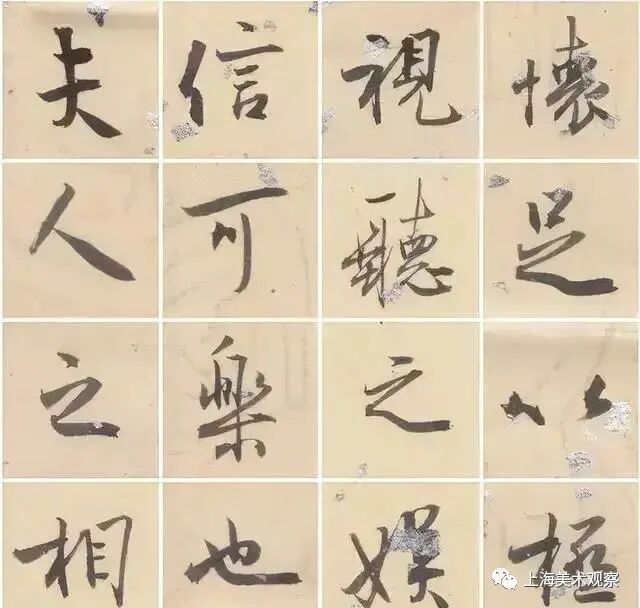 懷足以極
視聽之娛
信可樂也
夫人之相
上海美术观察